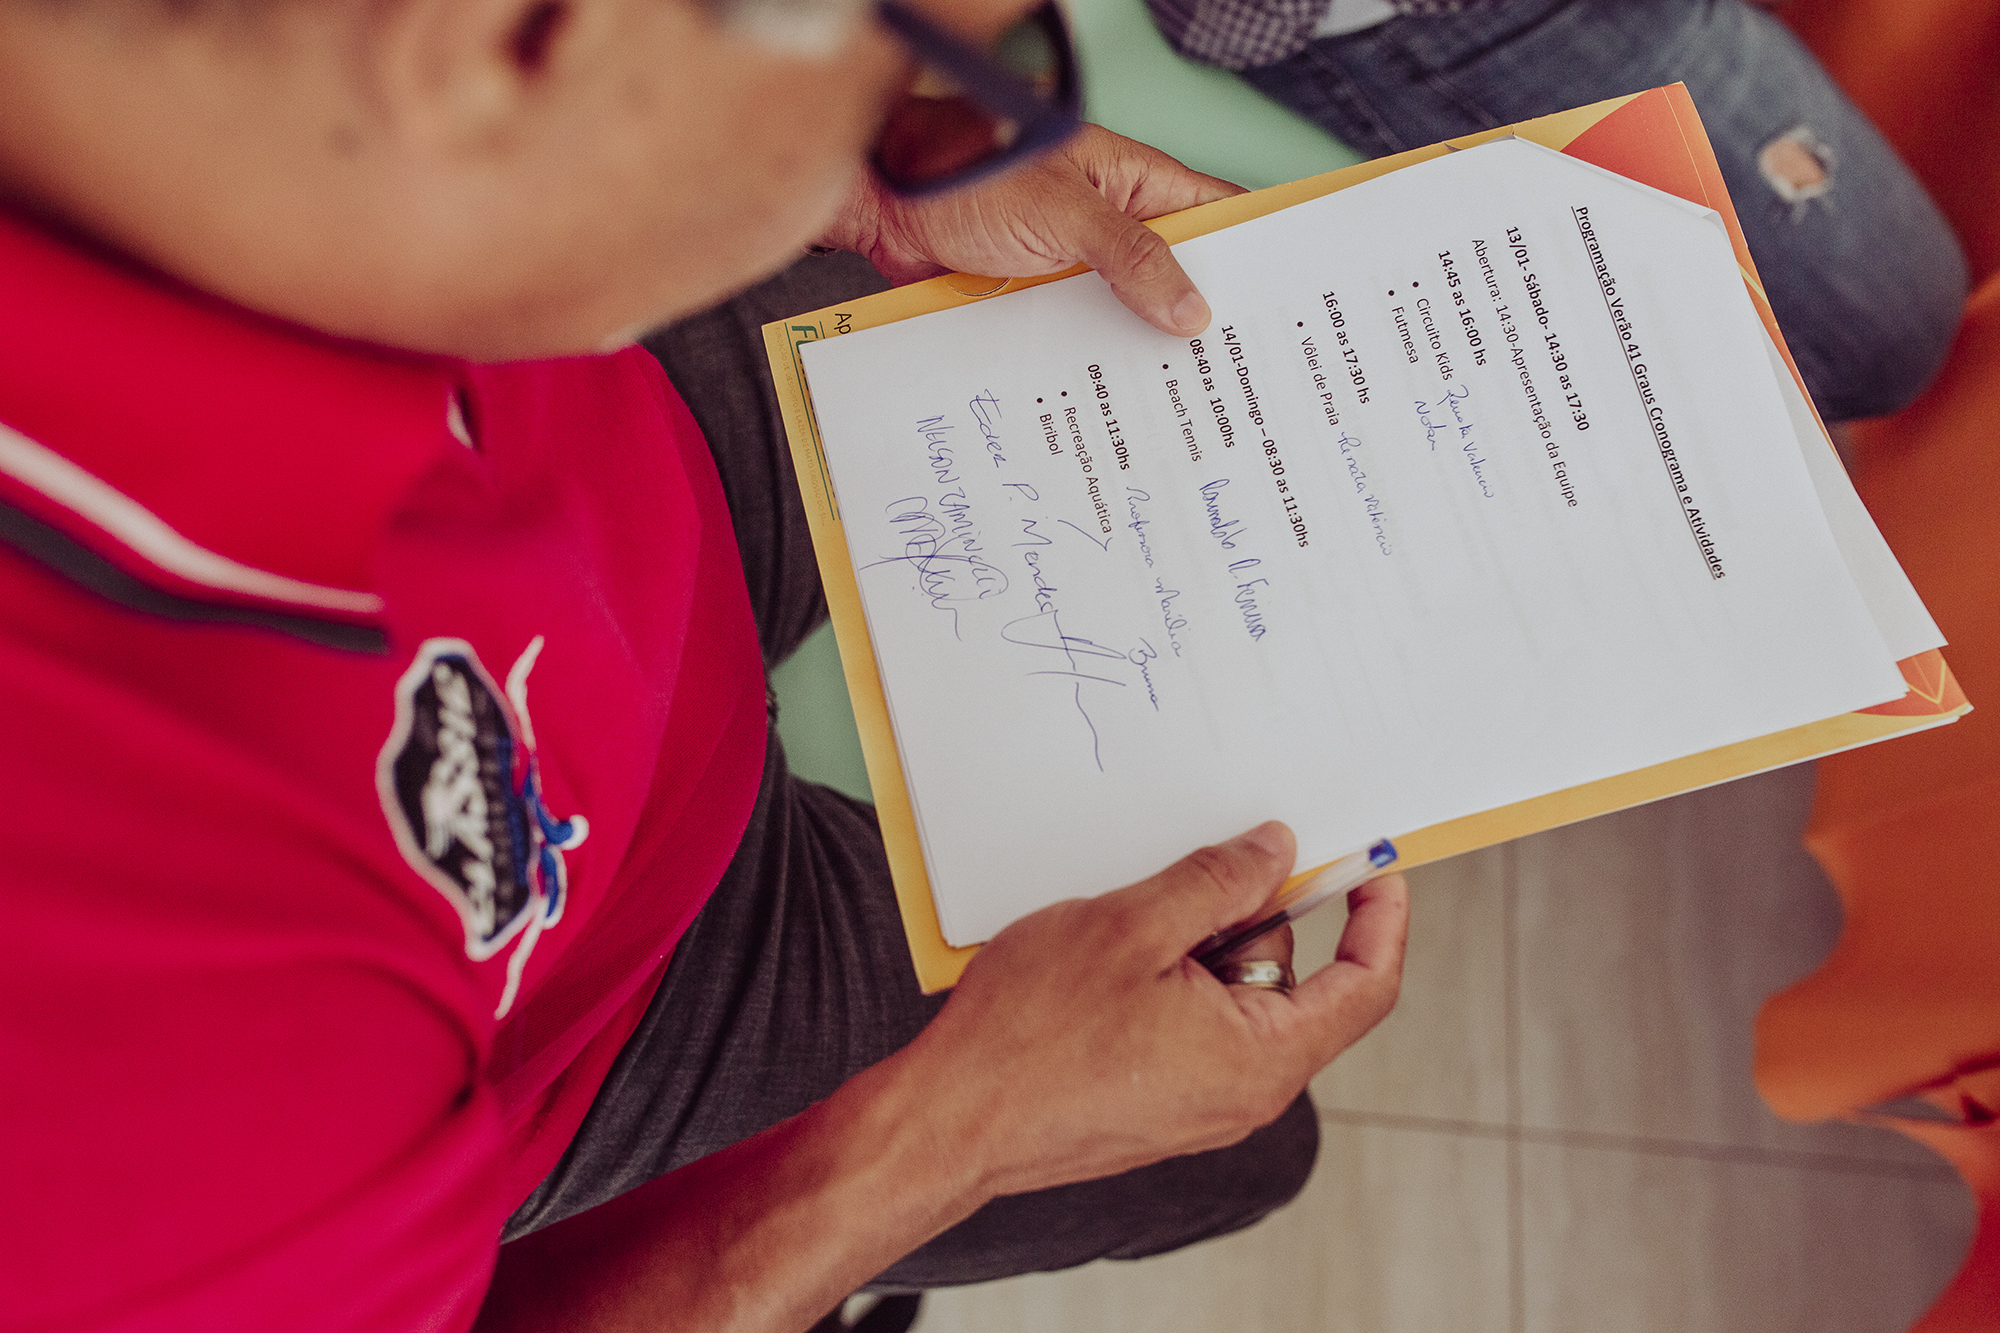 Programação Verão 41 Graus Cronograma e Atividades
13/01- Sábado- 14:30 as 17:30
Abertura: 14:30-Apresentação da Equipe
14:45 as 16:00 hs
• Circuito Kids Renata Valencio
• Futmesa
16:00 as 17:30 hs
• Vôlei de Praia Renata Valencio
14/01-Domingo – 08:30 as 11:30hs
08:40 as 10:00hs
• Beach Tennis
09:40 as 11:30hs Professora Marilia
• Recreação Aquática Bruno
• Biribol
Eder P. Mendes
Ap
CLASSIC